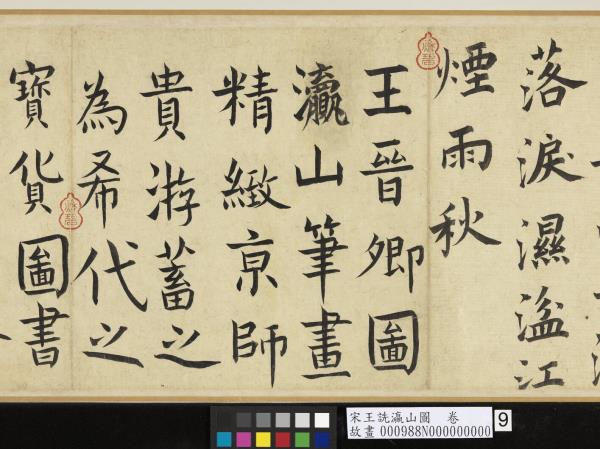 落淚濕湓江
煙雨秋
王晉卿圖
瀛山筆畫
精緻京師
貴游蓄之
為希代之
寶貨圖書
宋王詵瀛山圖 卷
故畫 000988N000000000
9